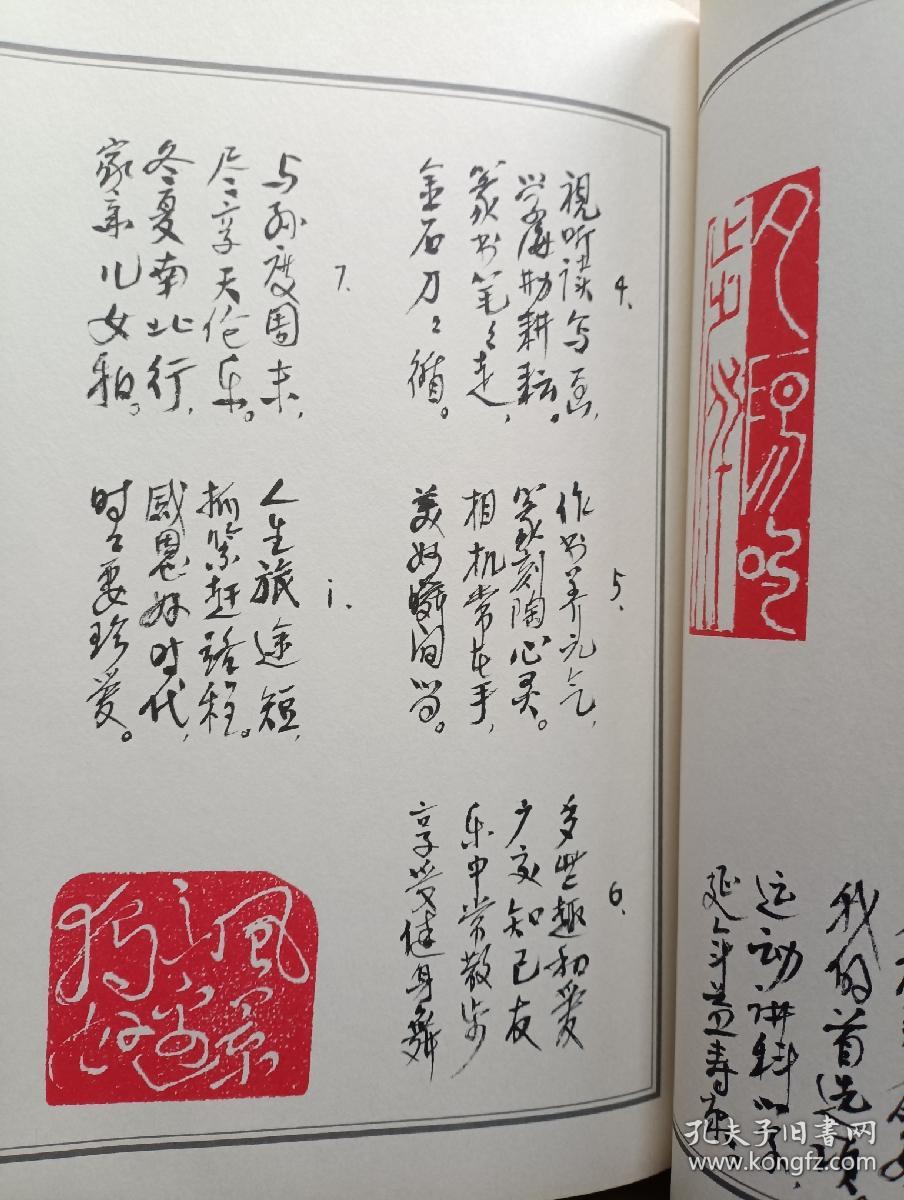 夕阳吟
我的首选项
运动讲科学,
延年益寿
4.
視听读写画,
学海勤耕耘。
篆书笔々走,
金石刀々循。
5.
作书养元气,
篆刻陶心灵。
相机常在手,
美好瞬间留。
6.
多些趣和爱
少交知己友
乐中常散步
享受健身舞
7.
与孙度周末,
尽享天伦乐。
冬夏南北行,
家亲儿女和。
1.
人生旅途短,
抓紧赶路程。
感恩好时代,
时々要珍爱。
風景
这边
独好
孔夫子旧书网
www.kongfz.com